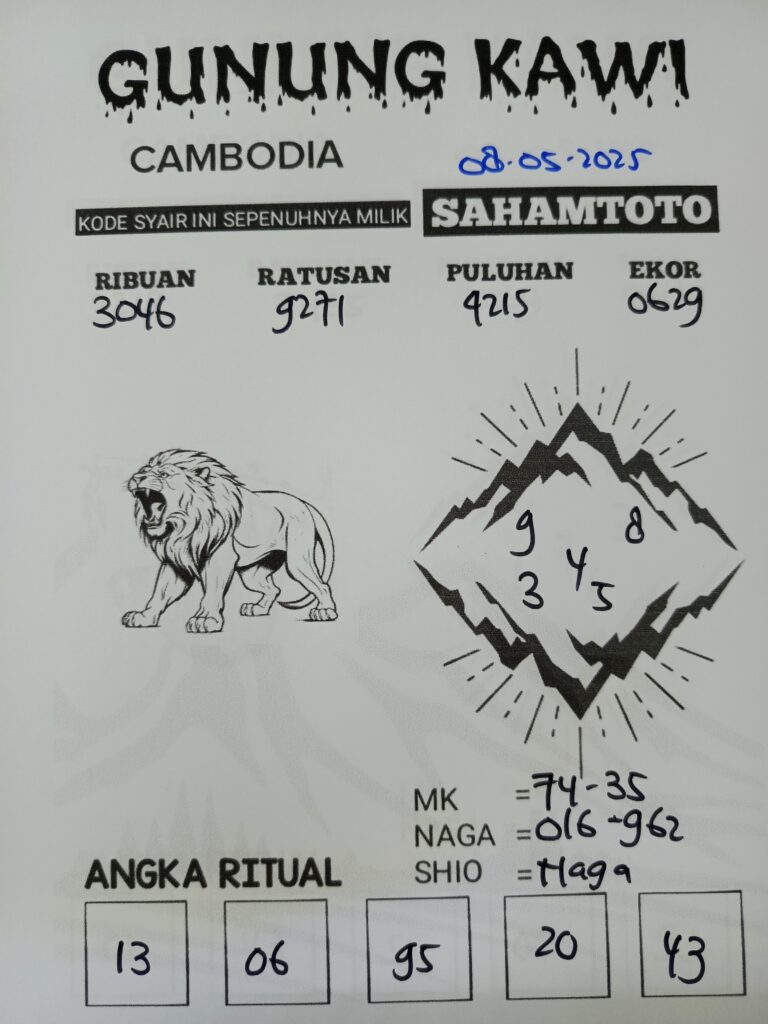 GUNUNG KAWI
CAMBODIA 08-05-2025
KODE SYAIR INI SEPENUHNYA MILIK SAHAMTOTO
RIBUAN RATUSAN PULUHAN EKOR
3046 9271 4215 0629
9 8
4
3 5
MK =74-35
NAGA =016-962
SHIO =Naga
ANGKA RITUAL
13 06 95 20 43